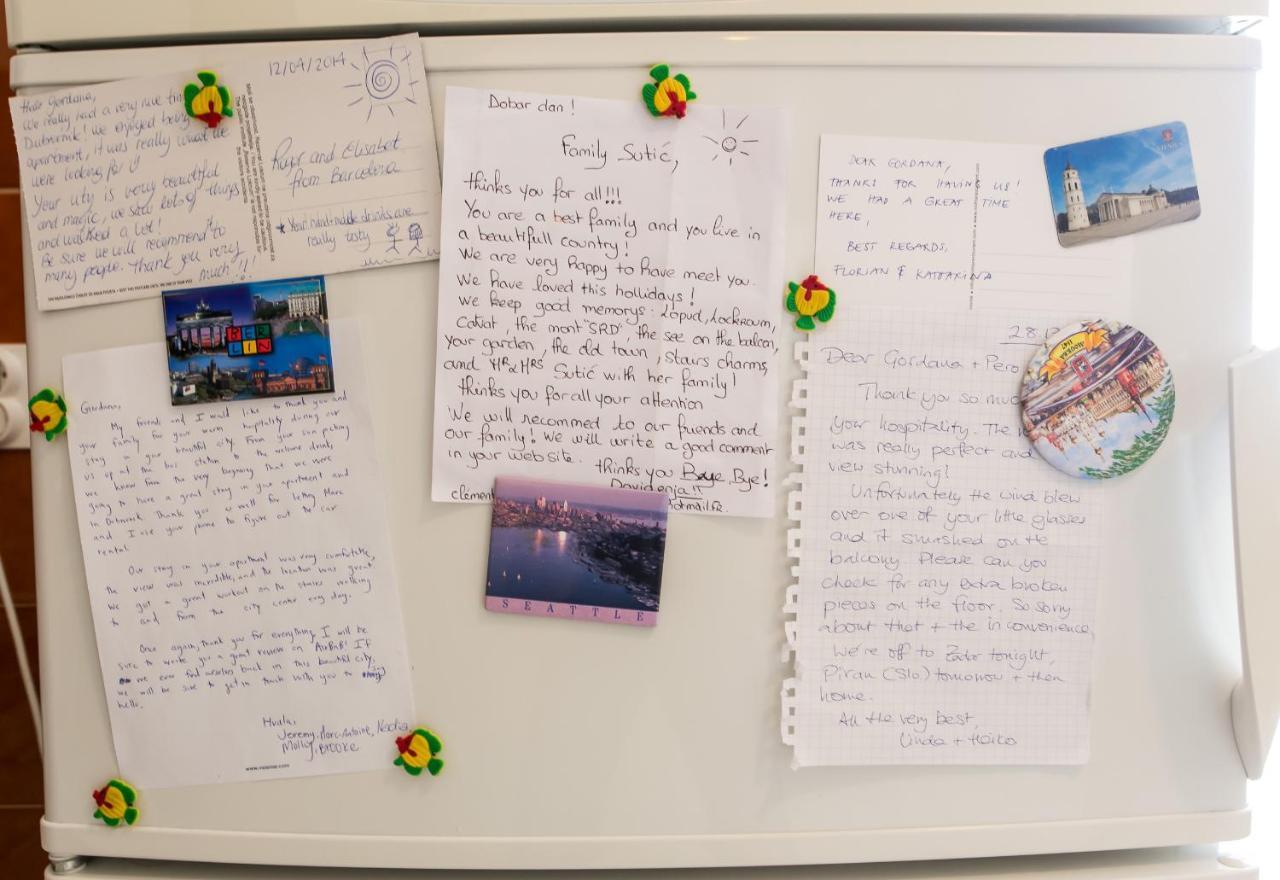 12/04/2014
Hello Gordana,
We really had a very nice
Dubrovnik! We enjoyed being
apartment, it was really what we
were looking for
Your city is very beautiful
and magic, we saw lots of things
and walked a lot!
Be sure we will recommend to
many people. Thank you very
much!!!
Roger and Elisabet
from Barcelona
★ Your hand-made drinks are
really tasty
BER
LIN
Gordana,
My friends and I would like to thank you and
your family for your warm hospitality during our
stay in your beautiful city. From your son picking
us up at the bus station to the welcome drink,
we knew from the very beginning that we were
going to have a great stay in your apartment and
in Dubrovnik. Thank you as well for letting Marc
and I use your phone to figure out the car
rental.
Our stay in your apartment was very comfortable,
the view was incredible, and the location was great.
We got a great workout on the stairs walking
to and from the city center every day.
Once again, thank you for everything. I will be
sure to write you a great review on AirBnB! If
we ever find ourselves back in this beautiful city,
we will be sure to get in touch with you to say
hello.
Hvala,
Jeremy, Marc-Antoine, Nadia,
Molly, Brooke
Dobar dan!
Family Sutić,
thinks you for all!!!
You are a best family and you live in
a beautifull country!
We are very happy to have meet you.
We have loved this hollidays!
We keep good memorys: Lopud, Lockroum,
Cavtat, the mont "SRD", the see on the balcon,
your garden, the old town, stairs charms,
and MR & MRS Sutić with her family!
thinks you for all your attention
We will recommed to our friends and
our family! We will write a good comment
in your website. thinks you Baye, Bye!
Davidenja!!
clément
hotmail.fr
SEATTLE
DEAR GORDANA,
THANKS FOR HAVING US!
WE HAD A GREAT TIME
HERE,
BEST REGARDS,
FLORIAN & KATHARINA
VILNIUS
28.
Dear Gordana + Pero
Thank you so much
your hospitality. The
was really perfect and
view stunning!
Unfortunately the wind blew
over one of your little glasses
and it smashed on the
balcony. Please can you
check for any extra broken
pieces on the floor. So sorry
about that + the inconvenience,
We're off to Zadar tonight,
Piran (Slo.) tomorrow + then
home.
All the very best,
Linda + Heiko